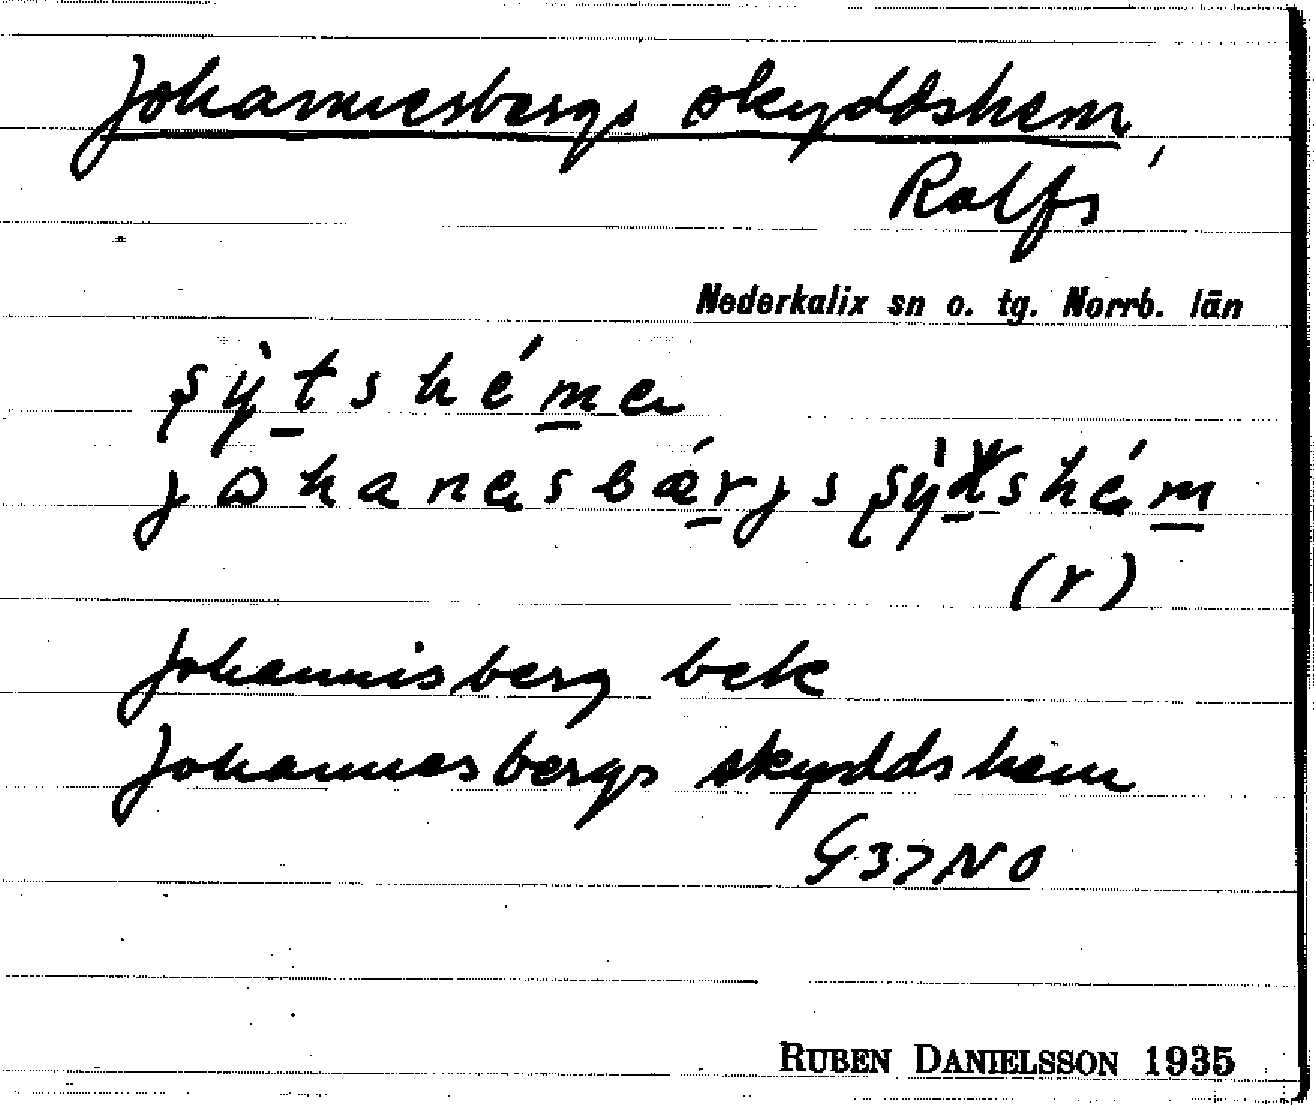 Johannesbergs skyddshem,
Rolfs
Nederkalix sn o. tg. Norrb. län
ʂỳt̲shém̲ɐ
jωhanɐsbǽr̲jsʂỳt̲shém̲
(r)
Johannisberg bek
Johannesbergs skyddshem
G 37 NO
RUBEN DANIELSSON 1935